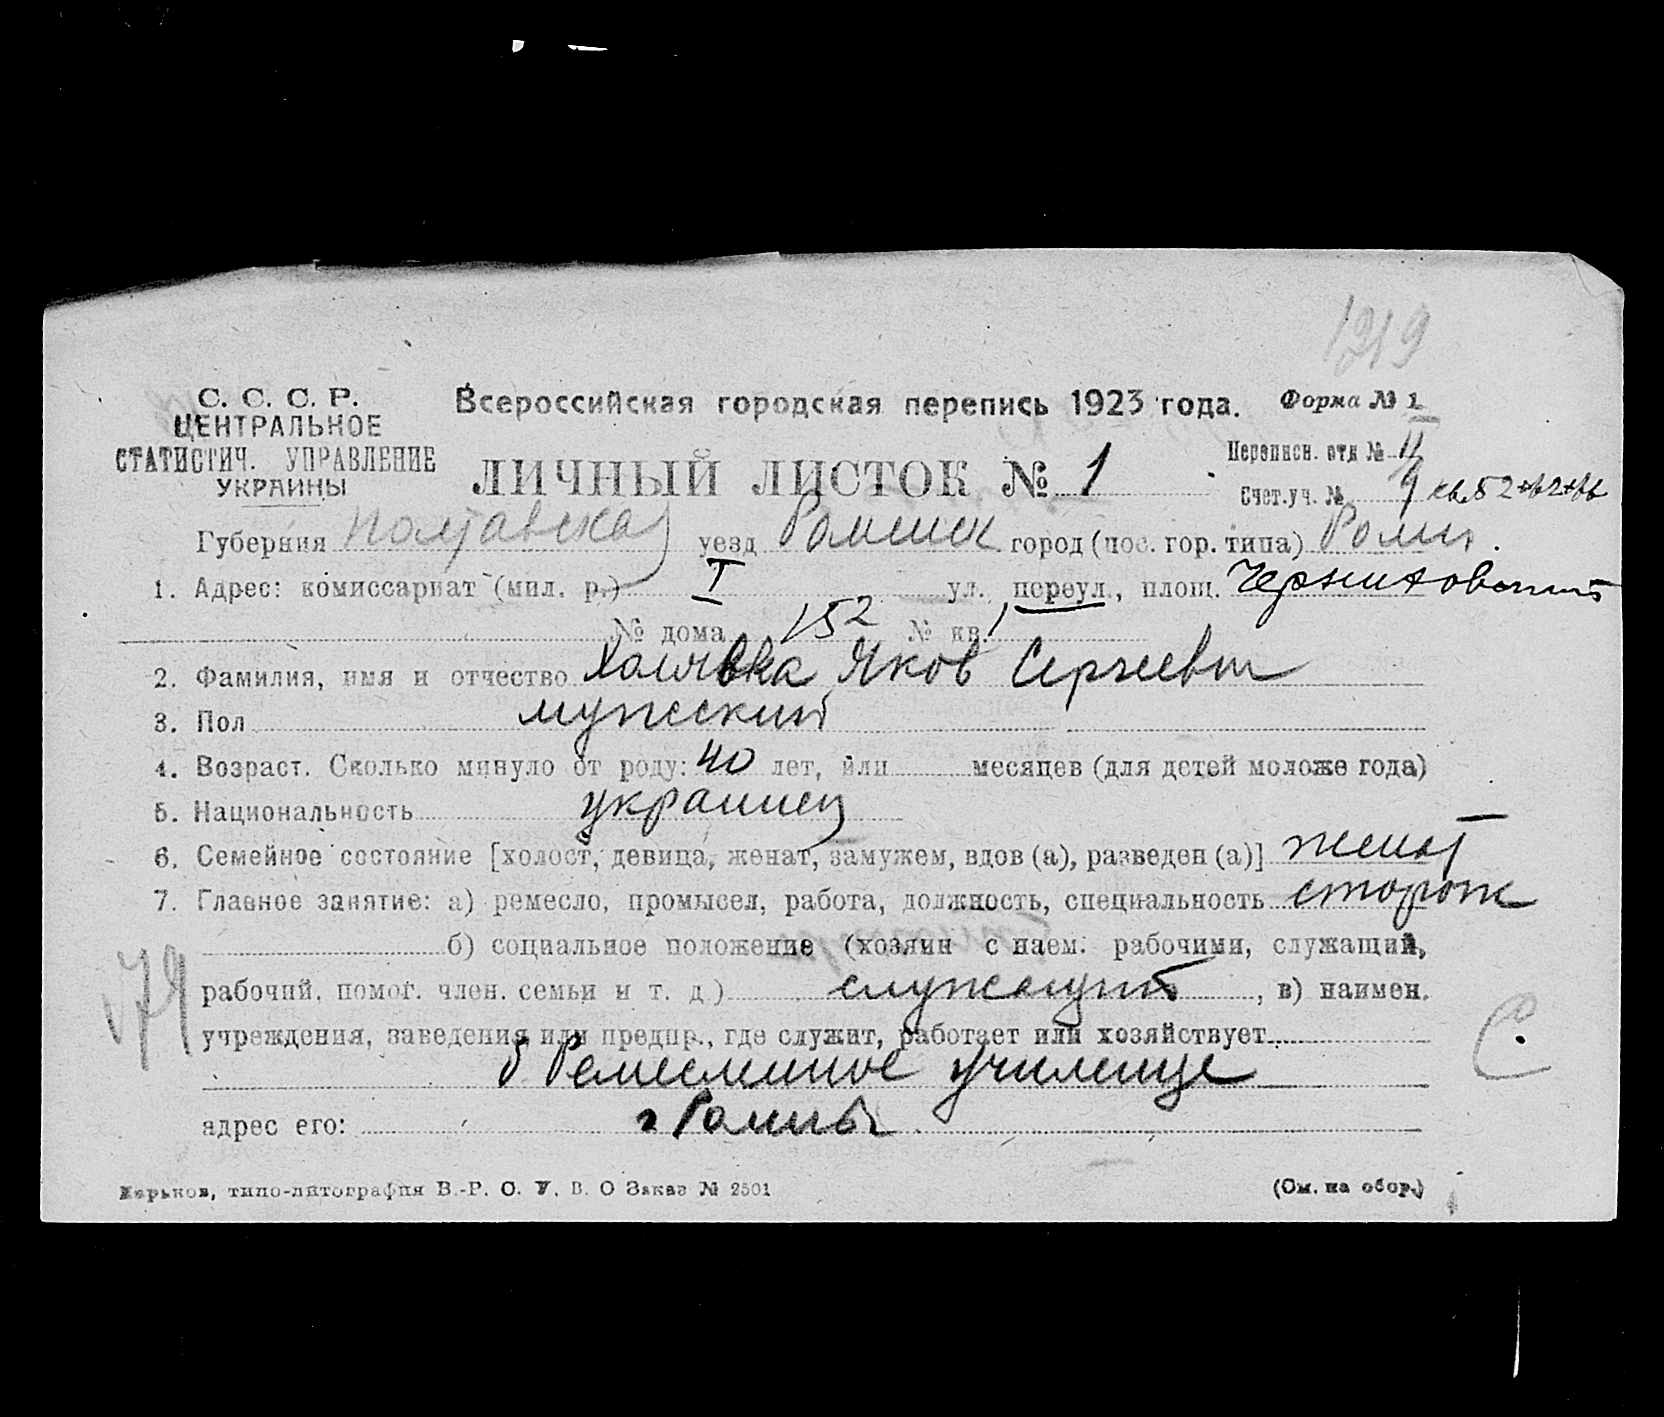 1219
С. С. С. Р.
ЦЕНТРАЛЬНОЕ
СТАТИСТИЧ. УПРАВЛЕНИЕ
УКРАИНЫ
Всероссийская городская перепись 1923 года.
Форма № 1
ЛИЧНЫЙ ЛИСТОК № 1
Переписн. отд № II
Счет.уч. № 9
Губерния Полтавская уезд Роменск город (пос. гор. типа) Ромн
1. Адрес: комиссариат (мил. р.) I ул. переул., площ. Черниховский
№ дома 152 № кв. 1
2. Фамилия, имя и отчество Халявка Яков Сергеевич
3. Пол мужеский
4. Возраст. Сколько минуло от роду: 40 лет, или месяцев (для детей моложе года)
5. Национальность украинец
6. Семейное состояние [холост, девица, женат, замужем, вдов (а), разведен (а)] женат
7. Главное занятие: а) ремесло, промысел, работа, должность, специальность сторож
б) социальное положение (хозяин с наем. рабочими, служащий,
рабочий, помог. член. семьи и т. д.) служащий, в) наимен.
учреждения, заведения или предпр., где служит, работает или хозяйствует
Ремесленное училище
адрес его: г Ромны
79
С.
Харьков, типо-литография В.-Р. О. У. В. О Заказ № 2501
(См. на обор.)